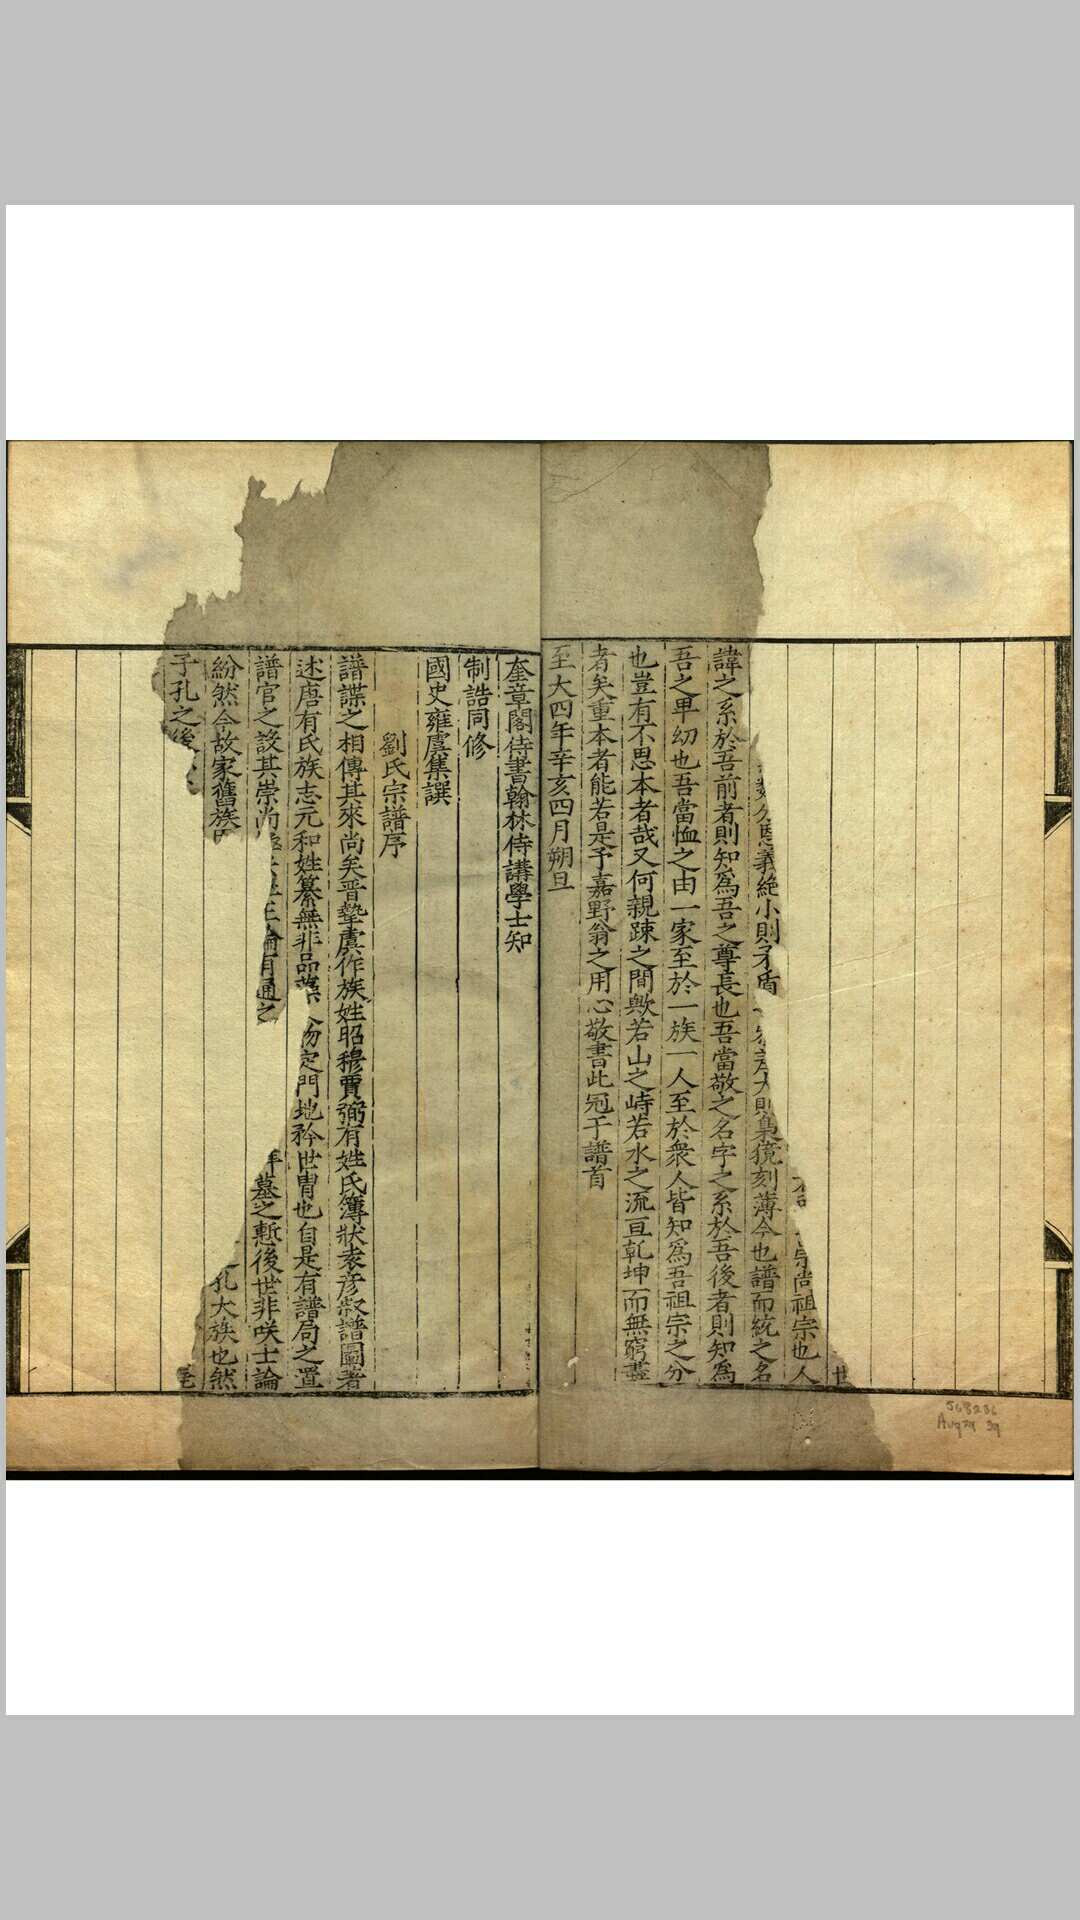 世
宗尚祖宗也人
恩義絶小則矛盾
大則梟獍刻薄今也譜而統之名
諱之系於吾前者則知爲吾之尊長也吾當敬之名字之系於吾後者則知爲
吾之卑幼也吾當恤之由一家至於一族一人至於衆人皆知爲吾祖宗之分
也豈有不思本者哉又何親踈之間歟若山之峙若水之流亘乾坤而無窮盡
者矣重本者能若是予嘉野翁之用心敬書此冠于譜首
至大四年辛亥四月朔旦
奎章閣侍書翰林侍講學士知
制誥同修
國史雍虞集譔
劉氏宗譜序
譜諜之相傳其來尚矣晋摯虞作族姓昭穆賈弼有姓氏簿狀袁彦叔譜圖著
述唐有氏族志元和姓纂無非品藻
定門地矜世冑也自是有譜局之置
譜官之設其崇尚
論有通之
墓之慙後世非咲士論
紛然今故家舊族
孔大族也然
子孔之後
568286
Aug 29 39